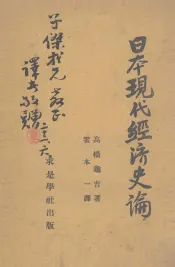 日本現代經済史論
高橋龜吉著
雲本一譯
求是學社出版
子傑我兄教正
譯者敬贈